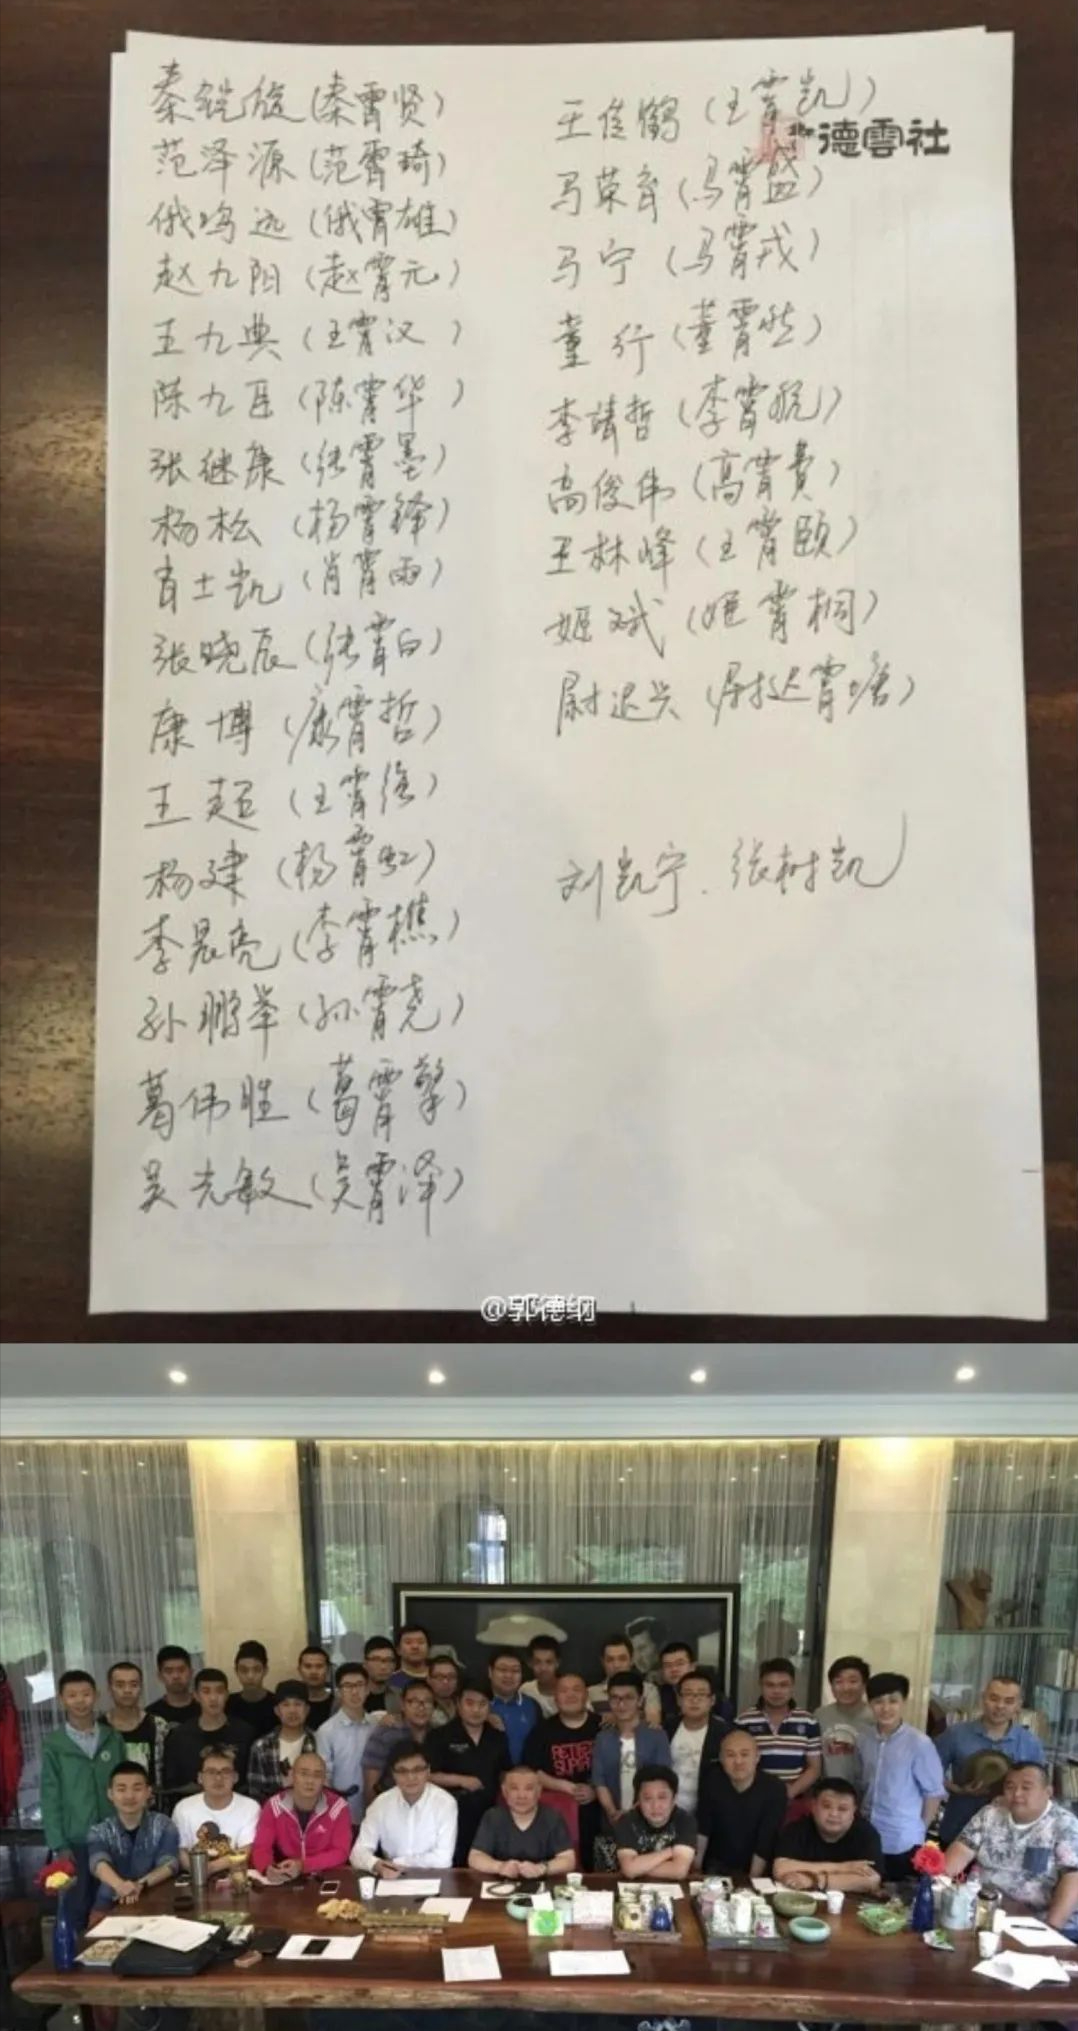 秦凯旋(秦霄贤)
范泽源(范霄琦)
俄鸣远(俄霄雄)
赵九阳(赵霄元)
王九典(王霄汉)
陈九臣(陈霄华)
张继康(张霄墨)
杨松(杨霄锋)
肖士凯(肖霄雨)
张晓辰(张霄白)
康博(康霄哲)
王超(王霄强)
杨建(杨霄虹)
李晨亮(李霄樵)
孙鹏举(孙霄尧)
葛伟胜(葛霄擎)
吴光敏(吴霄泽)
德雲社
王佳鹤(王霄凯)
马荣(马霄盛)
马宁(马霄戎)
董行(董霄然)
李靖哲(李霄航)
高俊伟(高霄贵)
王林峰(王霄颐)
姬斌(姬霄桐)
尉迟兴(尉迟霄塘)
刘凯宁、张树凯
@郭德纲